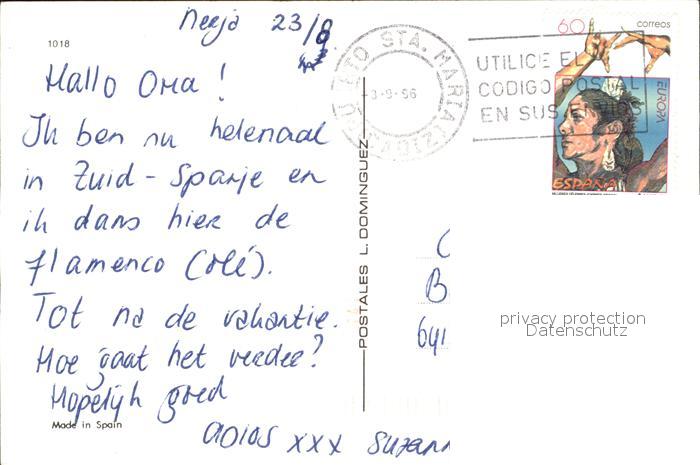 Nerja 23/8
1018
Hallo Oma!
Ik ben nu helemaal
in Zuid-Spanje en
ik dans hier de
flamenco (olé).
Tot na de vakantie.
Hoe gaat het verder?
Hopelijk goed
Made in Spain
adios xxx Suzann
POSTALES L. DOMINGUEZ
PUERTO STA. MARIA (CADIZ)
3-9-96
UTILICE EL
CODIGO POSTAL
EN SUS ENVIOS
60
correos
EUROPA
ESPAÑA
B
641
privacy protection
Datenschutz